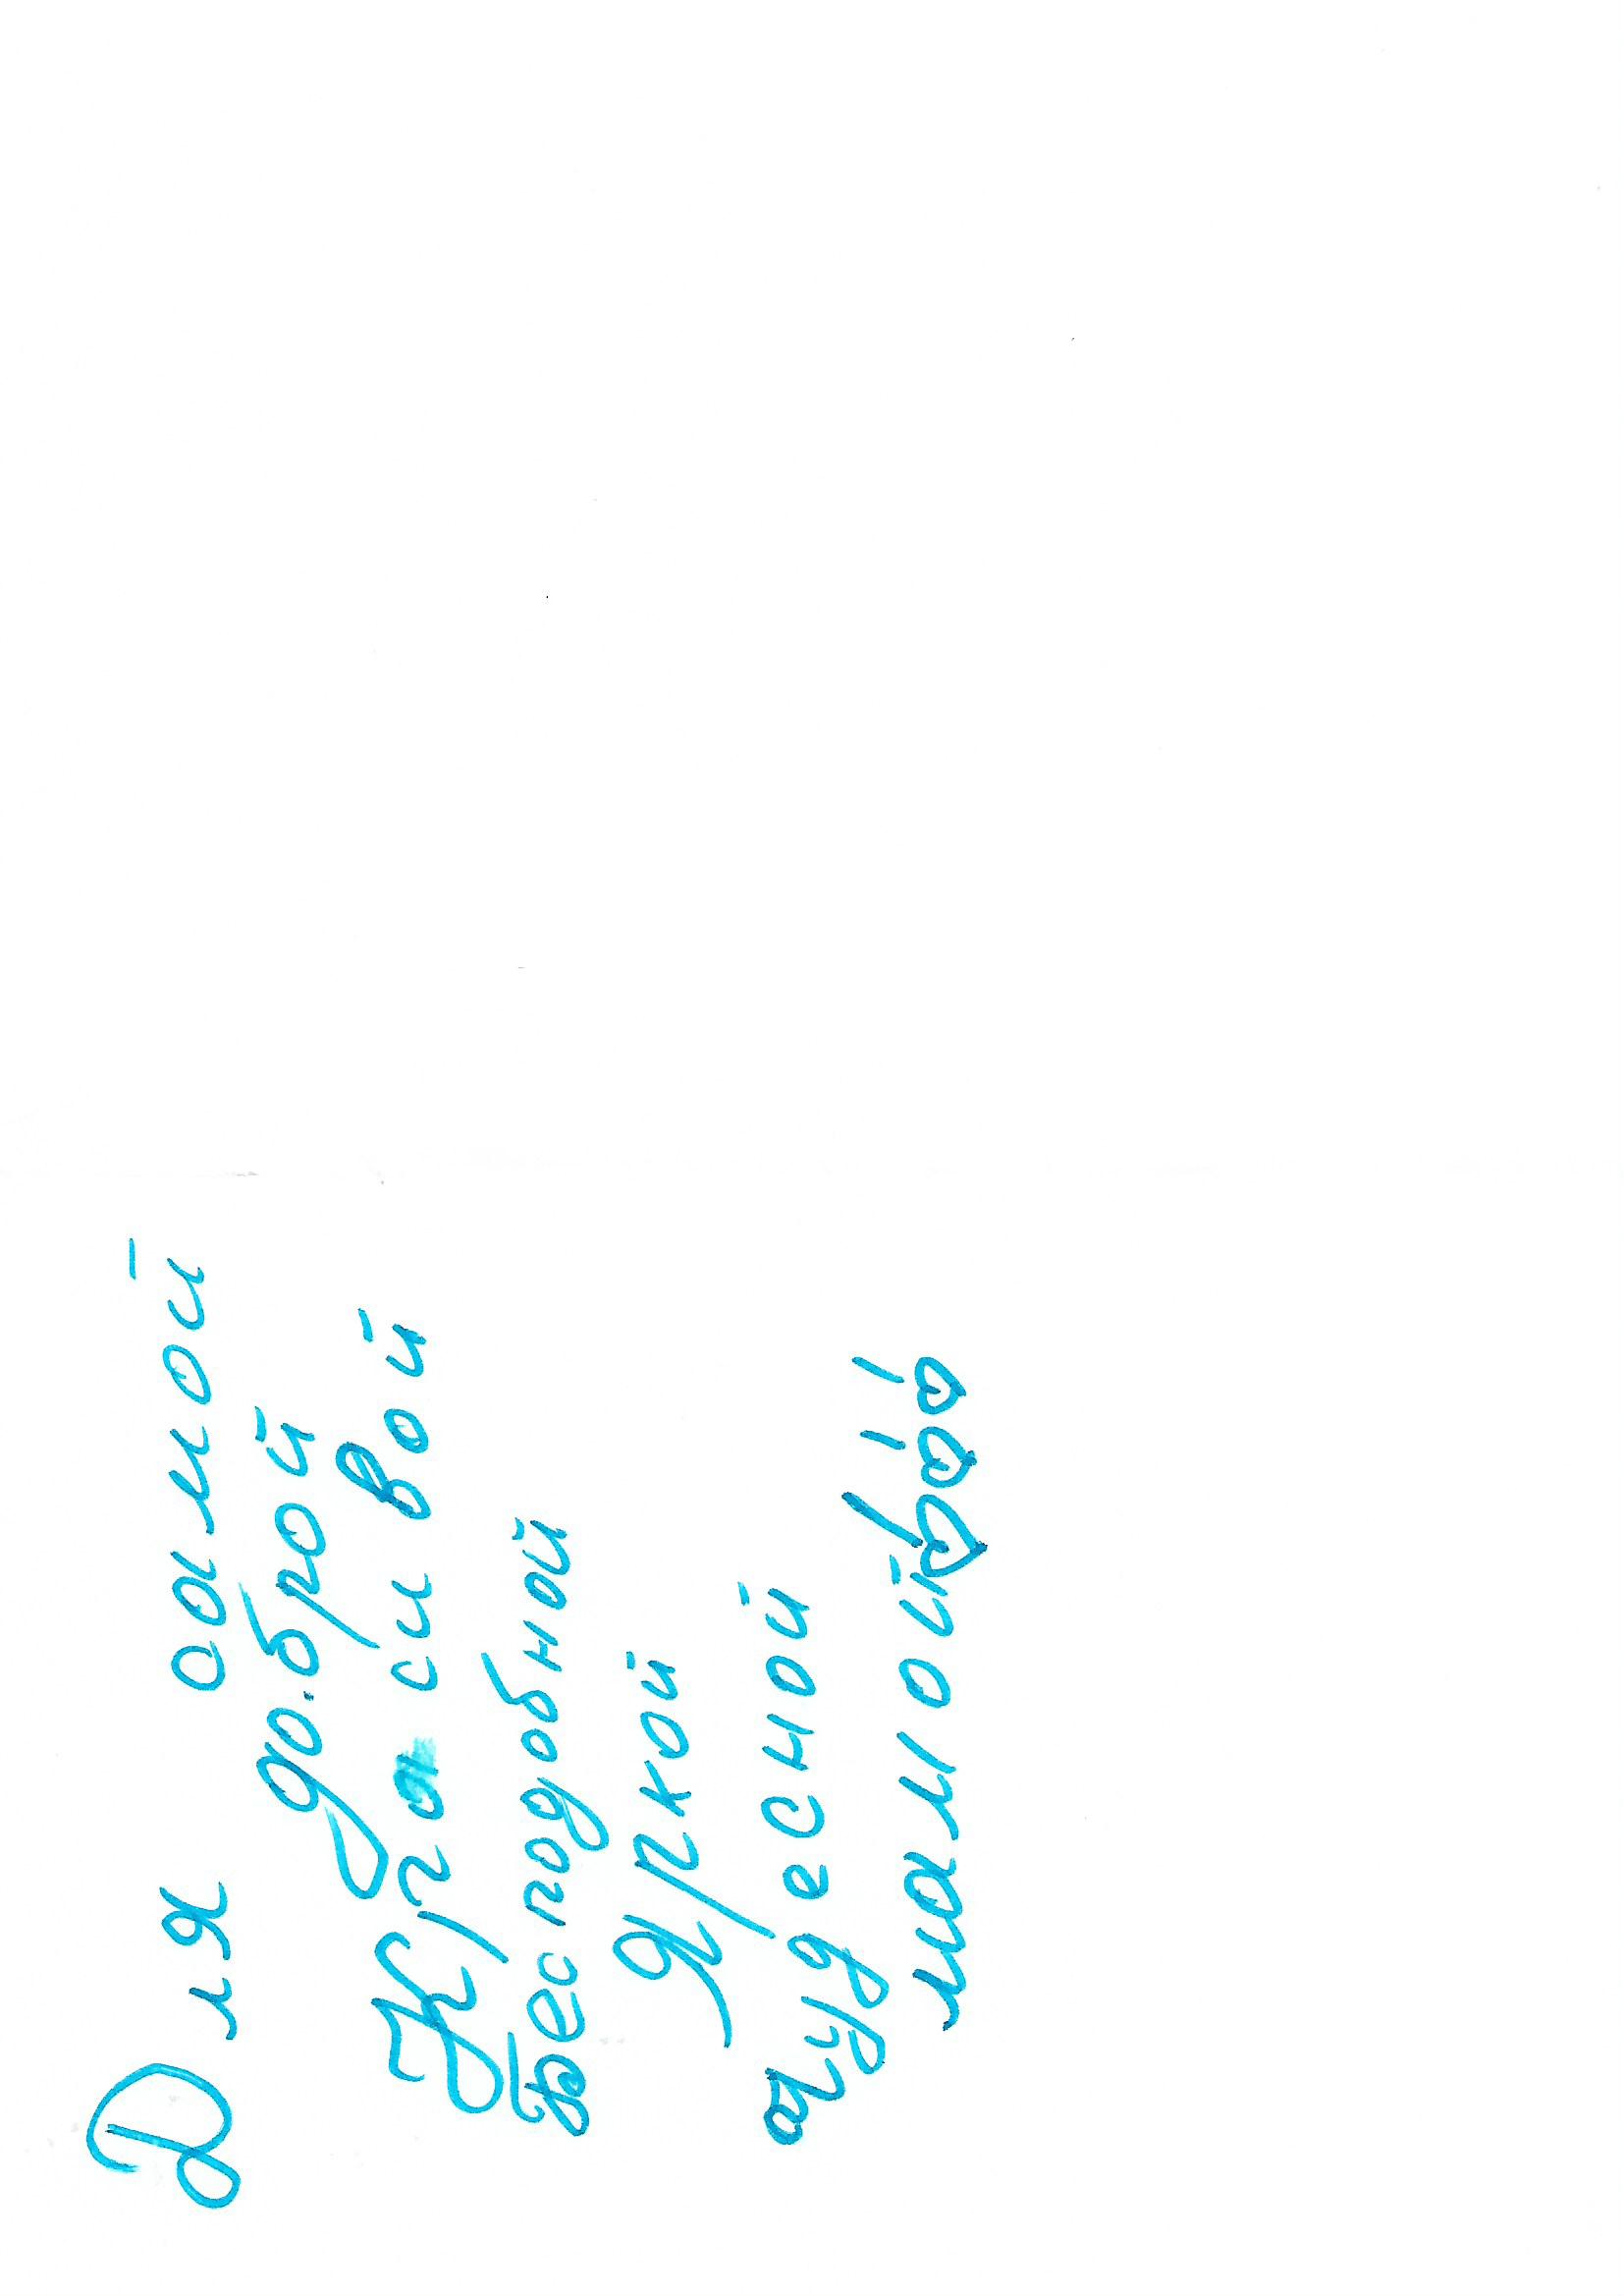 Для самой
доброй
Красивой
Бесподобной
Яркой
Чудесной
мамой!!!